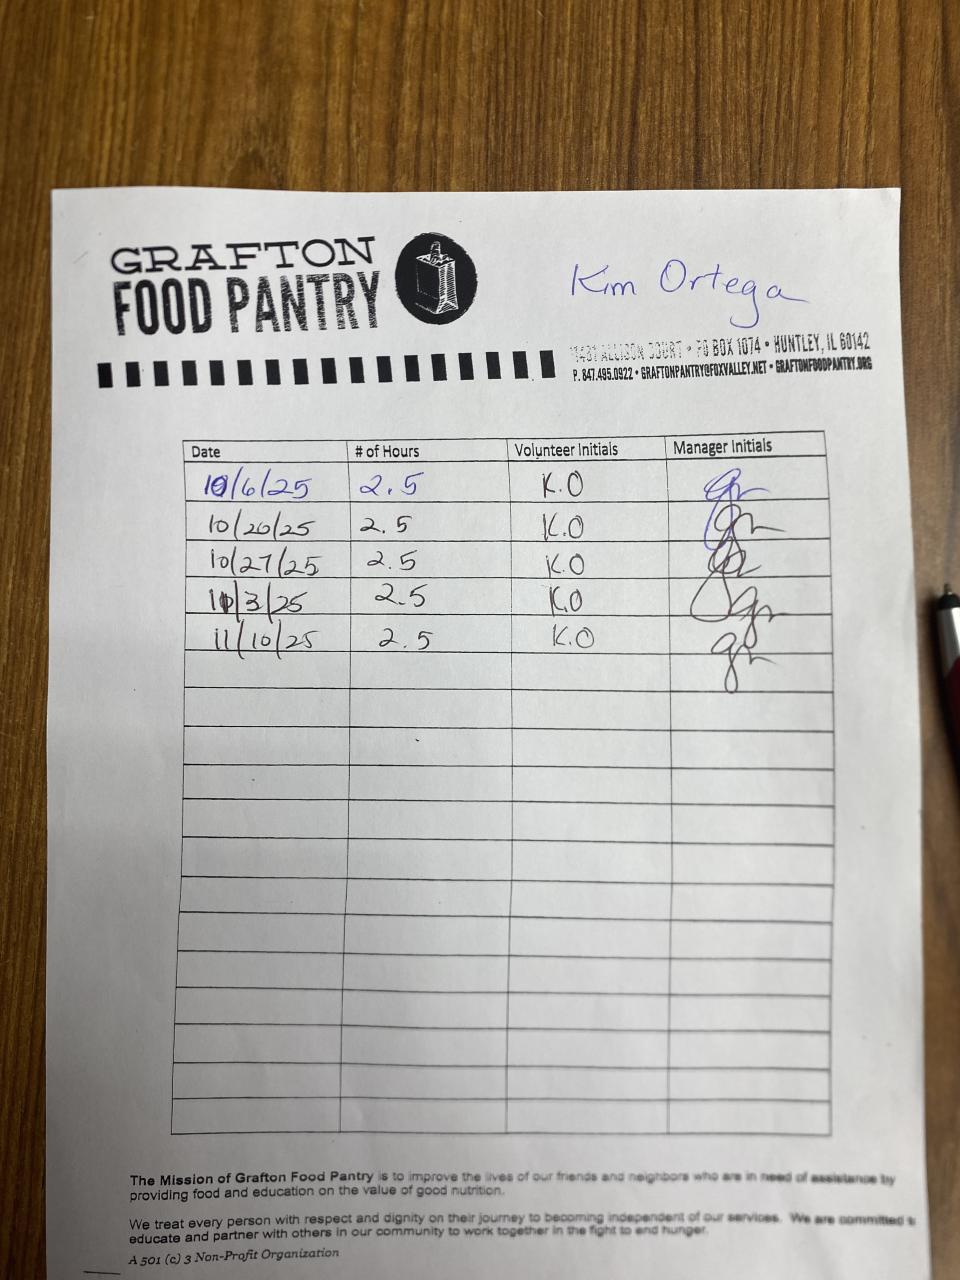 GRAFTON
FOOD PANTRY
Kim Ortega
11481 ALLISON COURT • PO BOX 1074 • HUNTLEY, IL 60142
P. 847.495.0922 • GRAFTONPANTRY@FOXVALLEY.NET • GRAFTONFOODPANTRY.ORG
Date # of Hours Volunteer Initials Manager Initials
10/6/25 2.5 K.O gr
10/20/25 2.5 K.O gr
10/27/25 2.5 K.O
11/3/25 2.5 K.O gr
11/10/25 2.5 K.O gr
The Mission of Grafton Food Pantry is to improve the lives of our friends and neighbors who are in need of assistance by
providing food and education on the value of good nutrition.
We treat every person with respect and dignity on their journey to becoming independent of our services. We are committed to
educate and partner with others in our community to work together in the fight to end hunger.
A 501 (c) 3 Non-Profit Organization